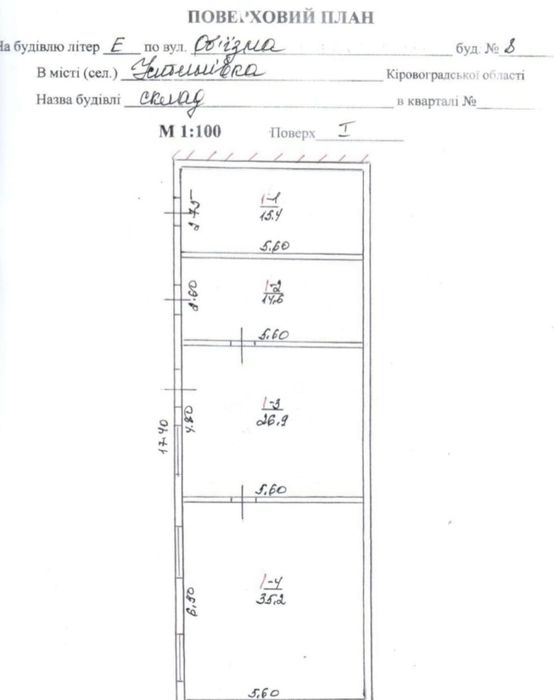 ПОВЕРХОВИЙ ПЛАН
На будівлю літер Е по вул. Об'їзна буд. № 8
В місті (сел.) Устинівка Кіровоградської області
Назва будівлі склад в кварталі №
М 1:100 Поверх I
1-1
2-75 15.4
5.60
1-2
2.60 14,6
5.60
1-3
4.80 26,9
17.40
5.60
1-4
6,30 35,2
5,60